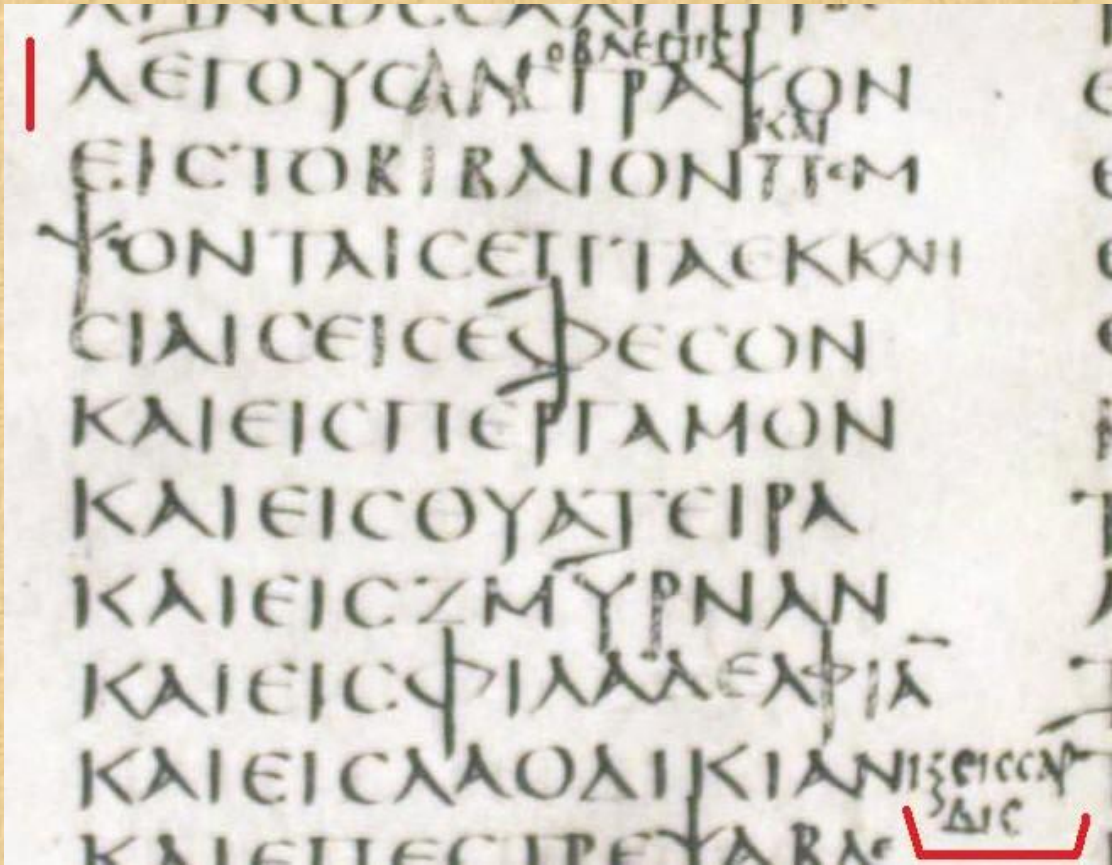 ΟΒΛΕΠΙϹ
ΛΕΓΟΥϹΑΝΓΡΑΨΟΝ
ΚΑΙ
ΕΙϹΤΟΒΙΒΛΙΟΝΠΕΜ
ΨΟΝΤΑΙϹΕΠΤΑΕΚΚΛΗ
ϹΙΑΙϹΕΙϹΕΦΕϹΟΝ
ΚΑΙΕΙϹΠΕΡΓΑΜΟΝ
ΚΑΙΕΙϹΘΥΑΤΕΙΡΑ
ΚΑΙΕΙϹΖΜΥΡΝΑΝ
ΚΑΙΕΙϹΦΙΛΑΔΕΛΦΙΑ̅
ΚΑΙΕΙϹΛΑΟΔΙΚΙΑΝ ΕΙϹϹΑΡ
ΔΙϹ
ΚΑΙΕΠΕϹΤΡΕΨΑΒΛΕ